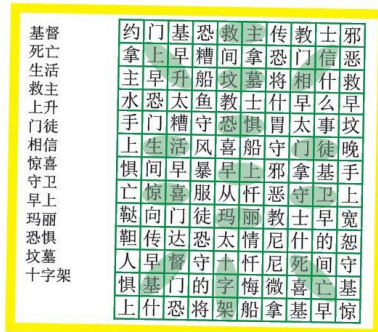 基督
死亡
生活
救主
上升
门徒
相信
惊喜
守卫
早上
玛丽
恐惧
坟墓
十字架
约门基恐救主传教士邪
拿上早糟间拿恐门信恶
主早升船坟墓将相什救
水恐太鱼教士什早么早
手门糟守恐惧胃太事坟
上生活风喜船守门徒晚
惧间早暴早上邪拿基手
亡惊喜服从忏恶守卫上
鞑向门徒玛丽教士早宽
靼传达恐太情尼什的恕
人早督守十忏尼死间守
惧基门的字悔微喜亡基
上什恐将架船拿基早惊